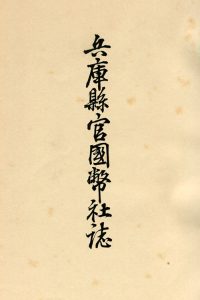 兵庫縣官國幣社誌